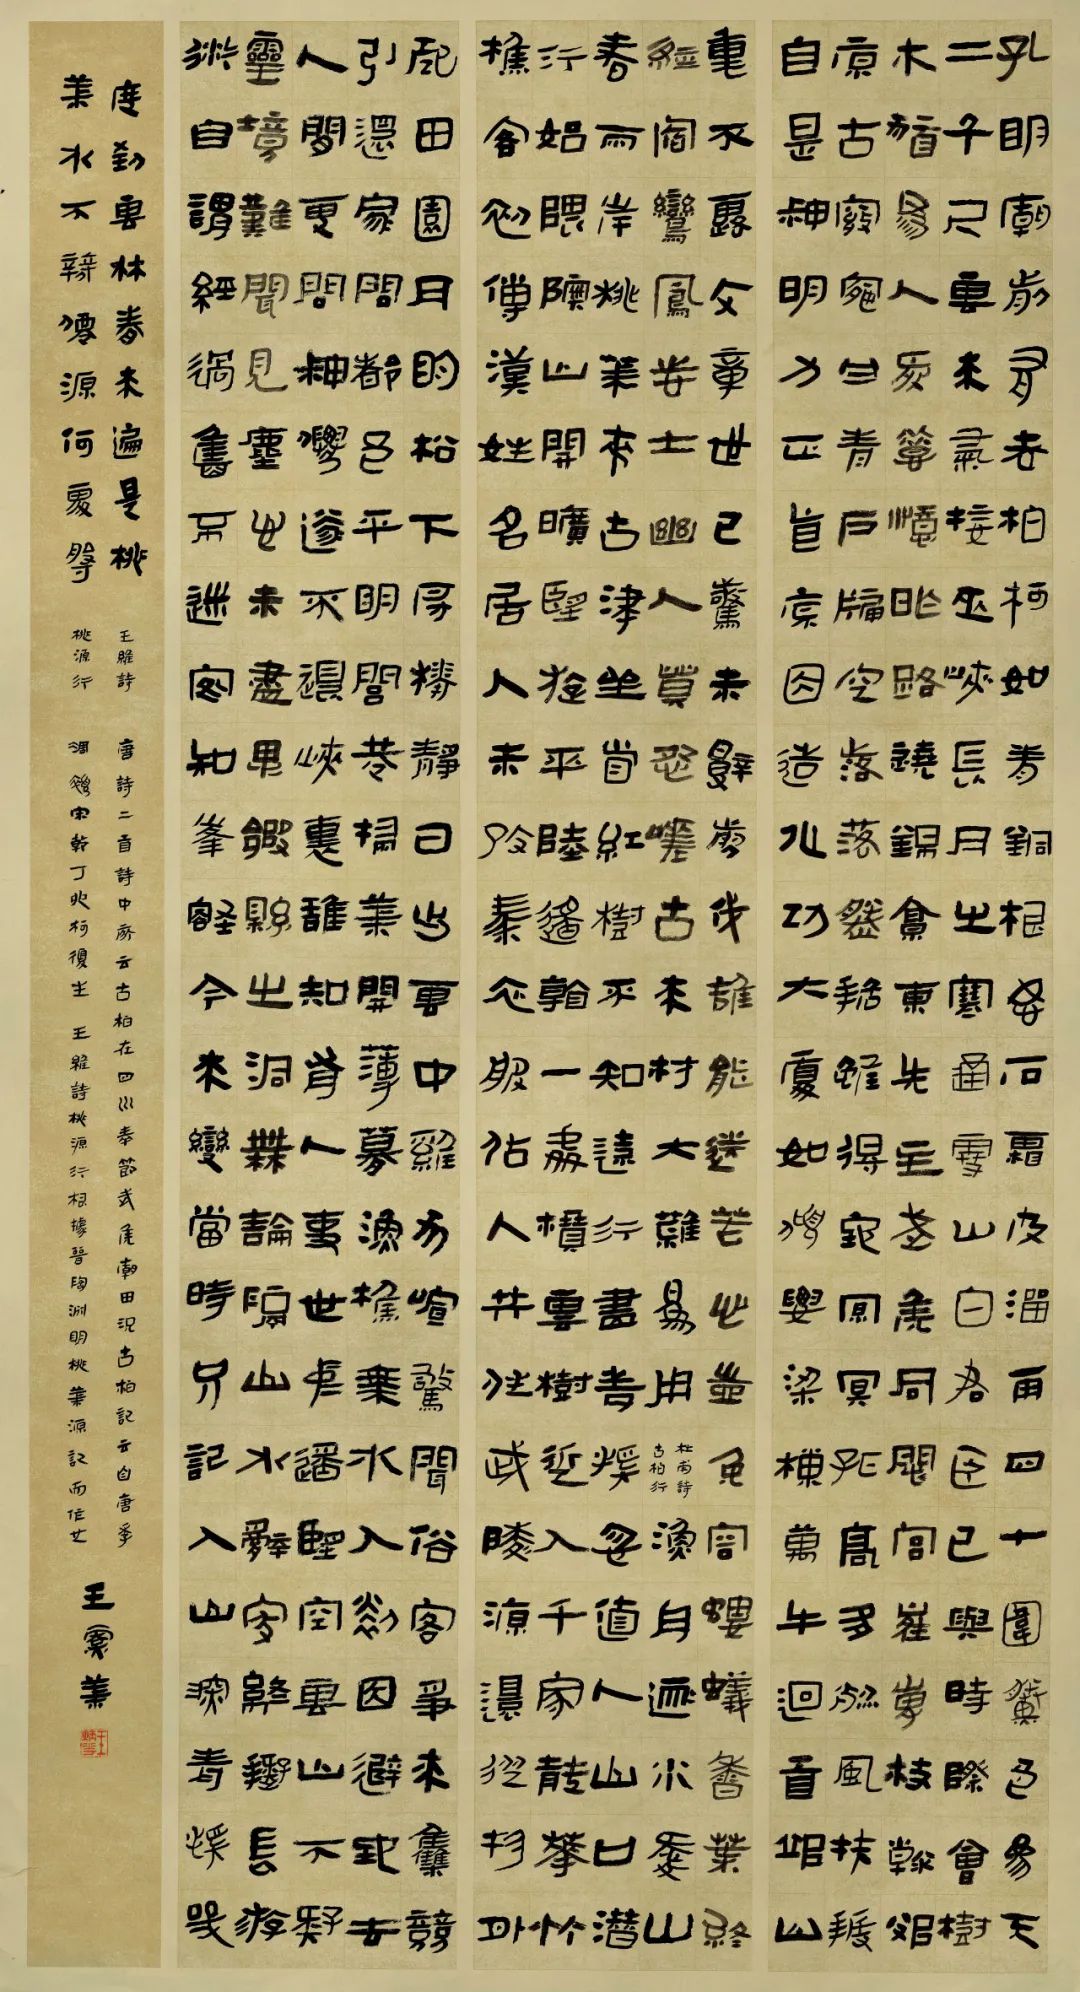 孔明廟前有老柏柯如青銅根如石霜皮溜雨四十圍黛色參天
二千尺雲來氣接巫峽長月出寒通雪山白君臣已與時際會樹
木猶爲人愛惜憶昨路繞錦亭東先主武侯同閟宮崔嵬枝幹郊
原古窈窕丹青戶牖空落落盤踞雖得地冥冥孤高多烈風扶持
自是神明力正直原因造化功大廈如傾要梁棟萬牛迴首丘山
重不露文章世已驚未辭翦伐誰能送苦心豈免容螻蟻香葉終
經宿鸞鳳志士幽人莫怨嗟古來材大難爲用
杜甫詩
古柏行
漁舟逐水愛山
春兩岸桃花夾古津坐看紅樹不知遠行盡青溪忽值人山口潛
行始隈隩山開曠望旋平陸遙看一處攢雲樹近入千家散花竹
樵客初傳漢姓名居人未改秦衣服居人共住武陵源還從物外
起田園月明松下房櫳靜日出雲中雞犬喧驚聞俗客爭來集競
引還家問都邑平明閭巷掃花開薄暮漁樵乘水入初因避地去
人間更問神仙遂不還峽裏誰知有人事世中遙望空雲山不疑
靈境難聞見塵心未盡思鄉縣出洞無論隔山水辭家終擬長游
衍自謂經過舊不迷安知峰壑今來變當時只記入山深青溪幾
度到雲林春來遍是桃
花水不辨仙源何處尋
王維詩
桃源行
唐詩二首詩中所云古柏在四川奉節武侯廟田況古柏記云自唐季
凋瘁宋乾丁卯柯復生 王維詩桃源行根據晉陶淵明桃花源記而作也